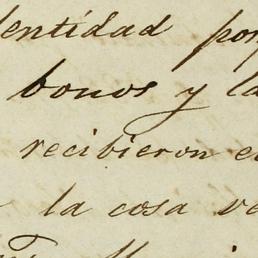 dentidad por
bonos y la
recibieron e
la cosa ve